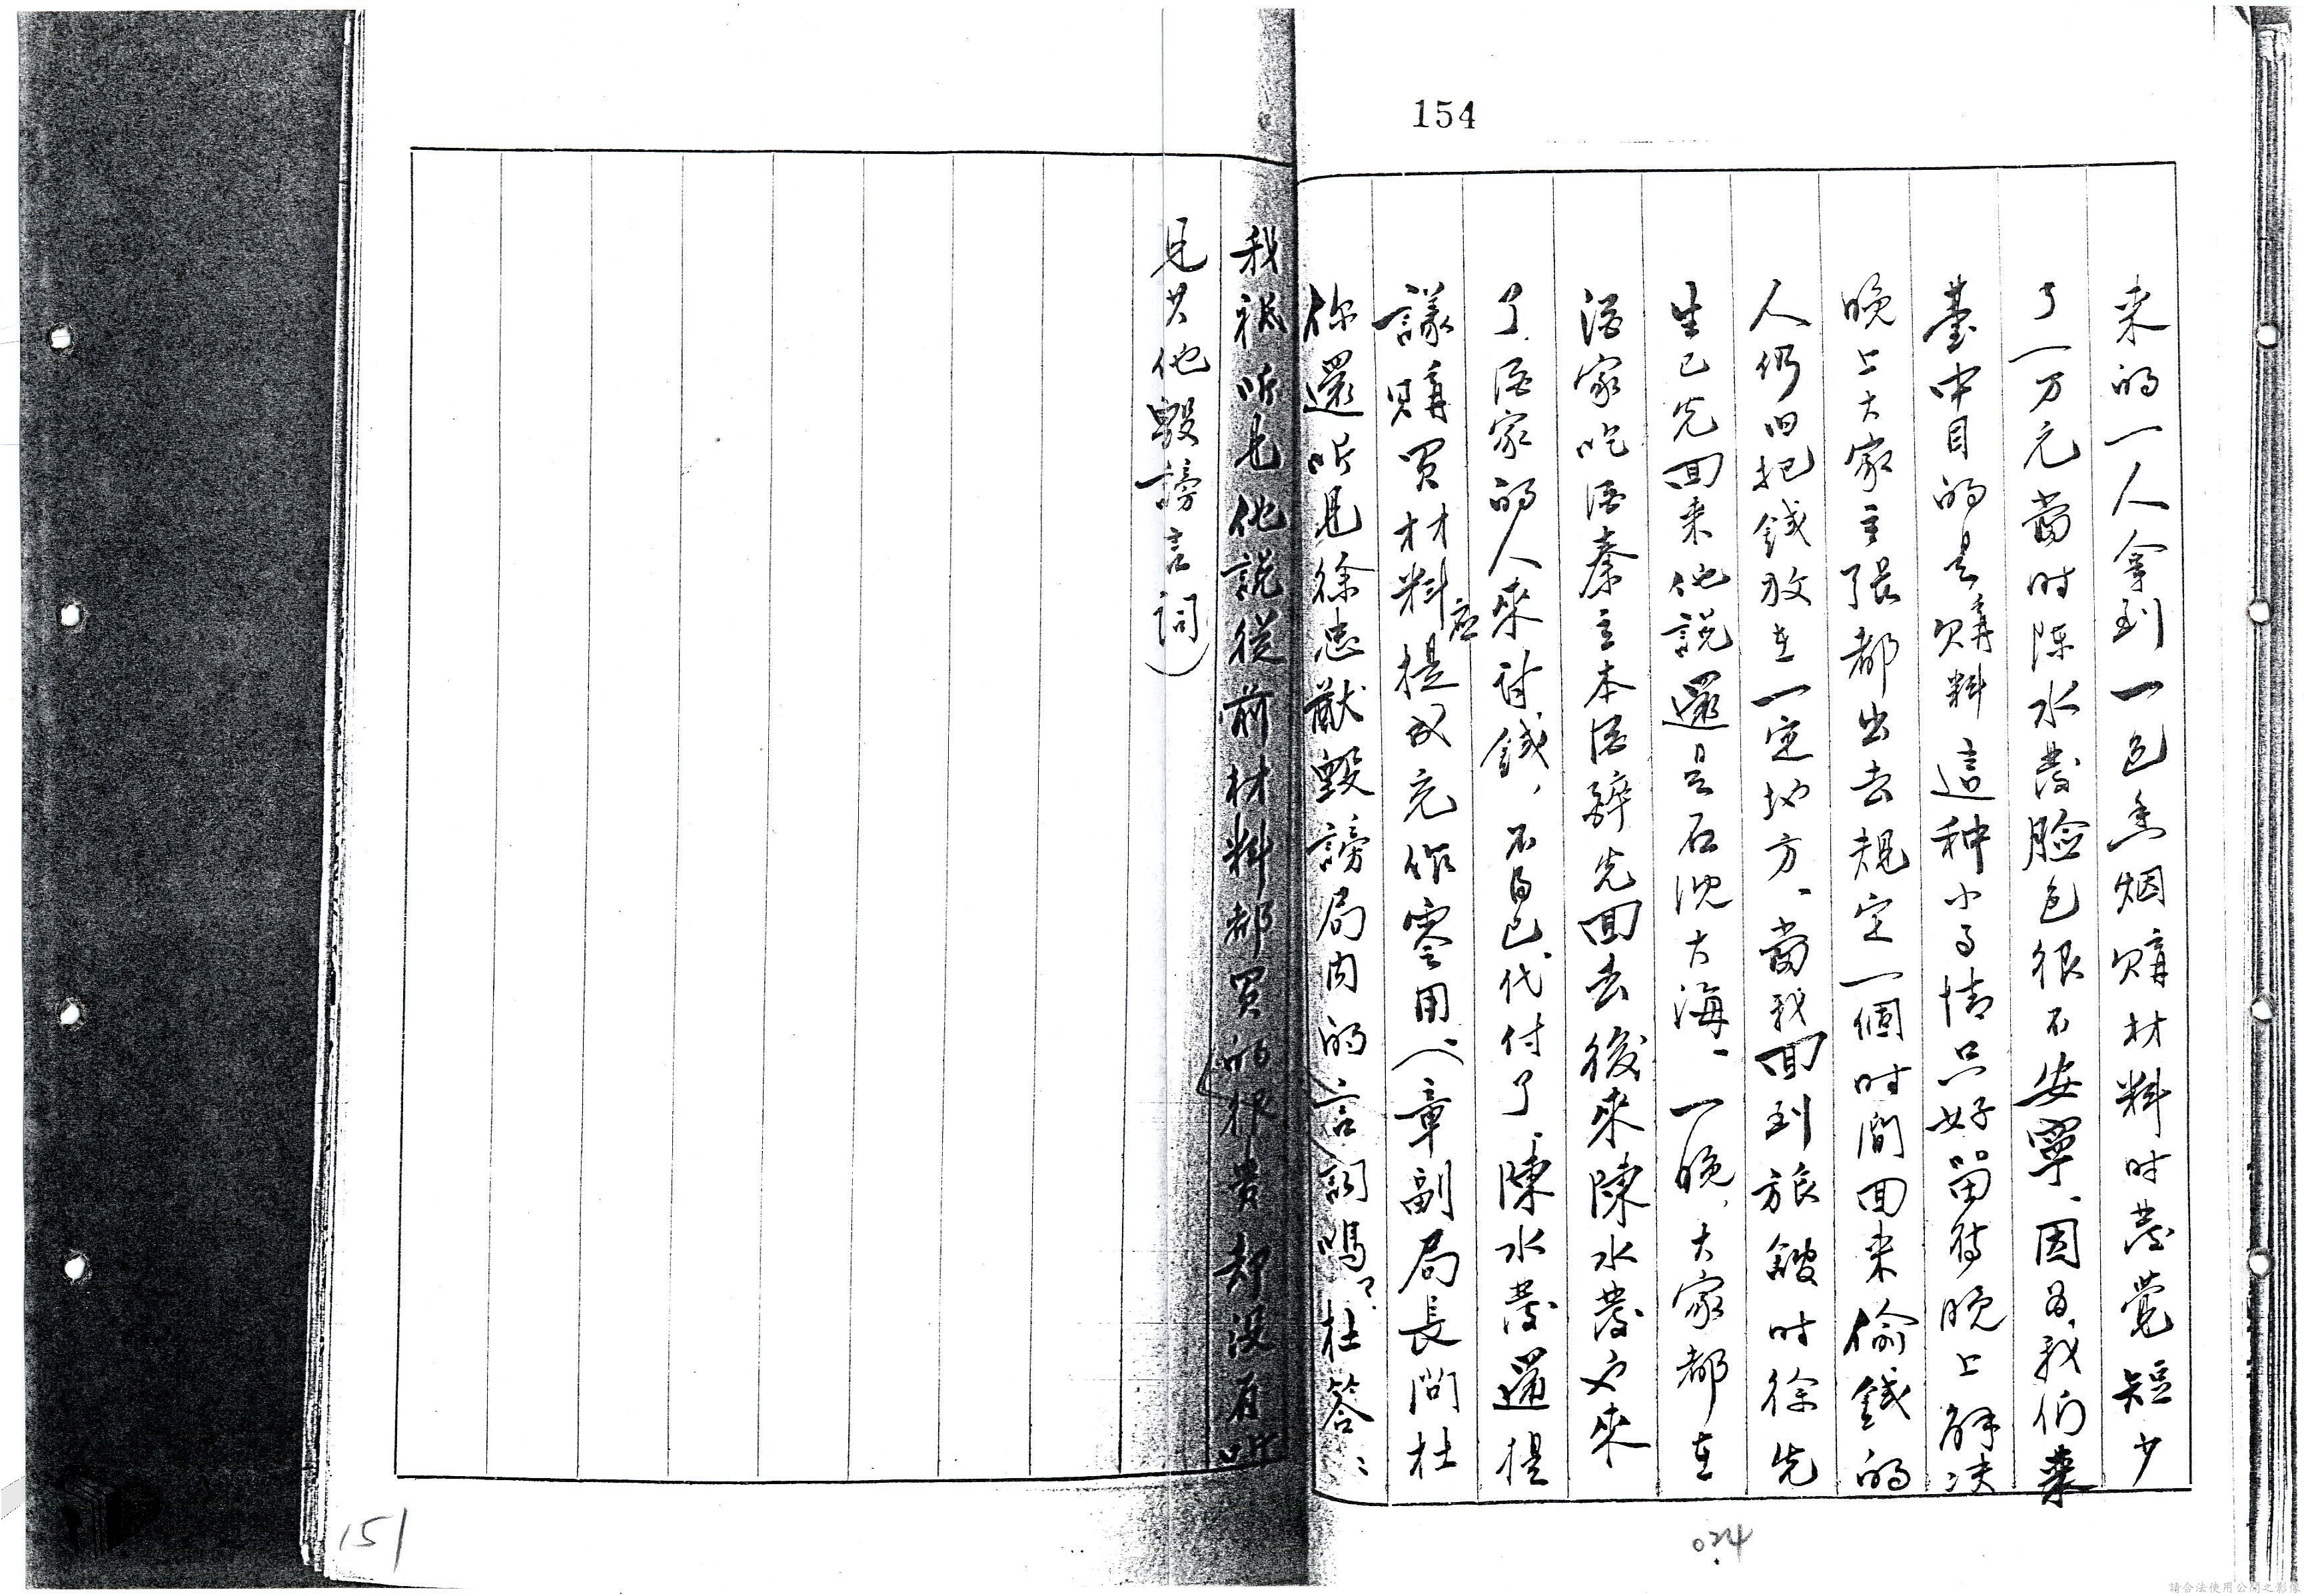 154
来的一人拿到一包香烟購材料时發覺短少
了一万元當时陈水發脸色很不安寧、因為我们来
臺中目的是購料這种小事情只好留待晚上解决
晚上大家主張都出去規定一個时間回来偷錢的
人仍旧把錢放在一定地方、當我回到旅館时徐先
生已先回来他說還是石沈大海、一晚、大家都在
酒家吃酒秦主本酒醉先回去後來陳水發又來
了、酒家的人來討錢、不得已代付了、陳水發還提
議購買材料應提成充作零用、(章副局長問杜
你還听見徐忠猷毀謗局内的言詞嗎？杜答：
我祇听見他說從前材料都買的很貴却没有听
見其他毀謗言詞)
024
151
請合法使用公開之影像